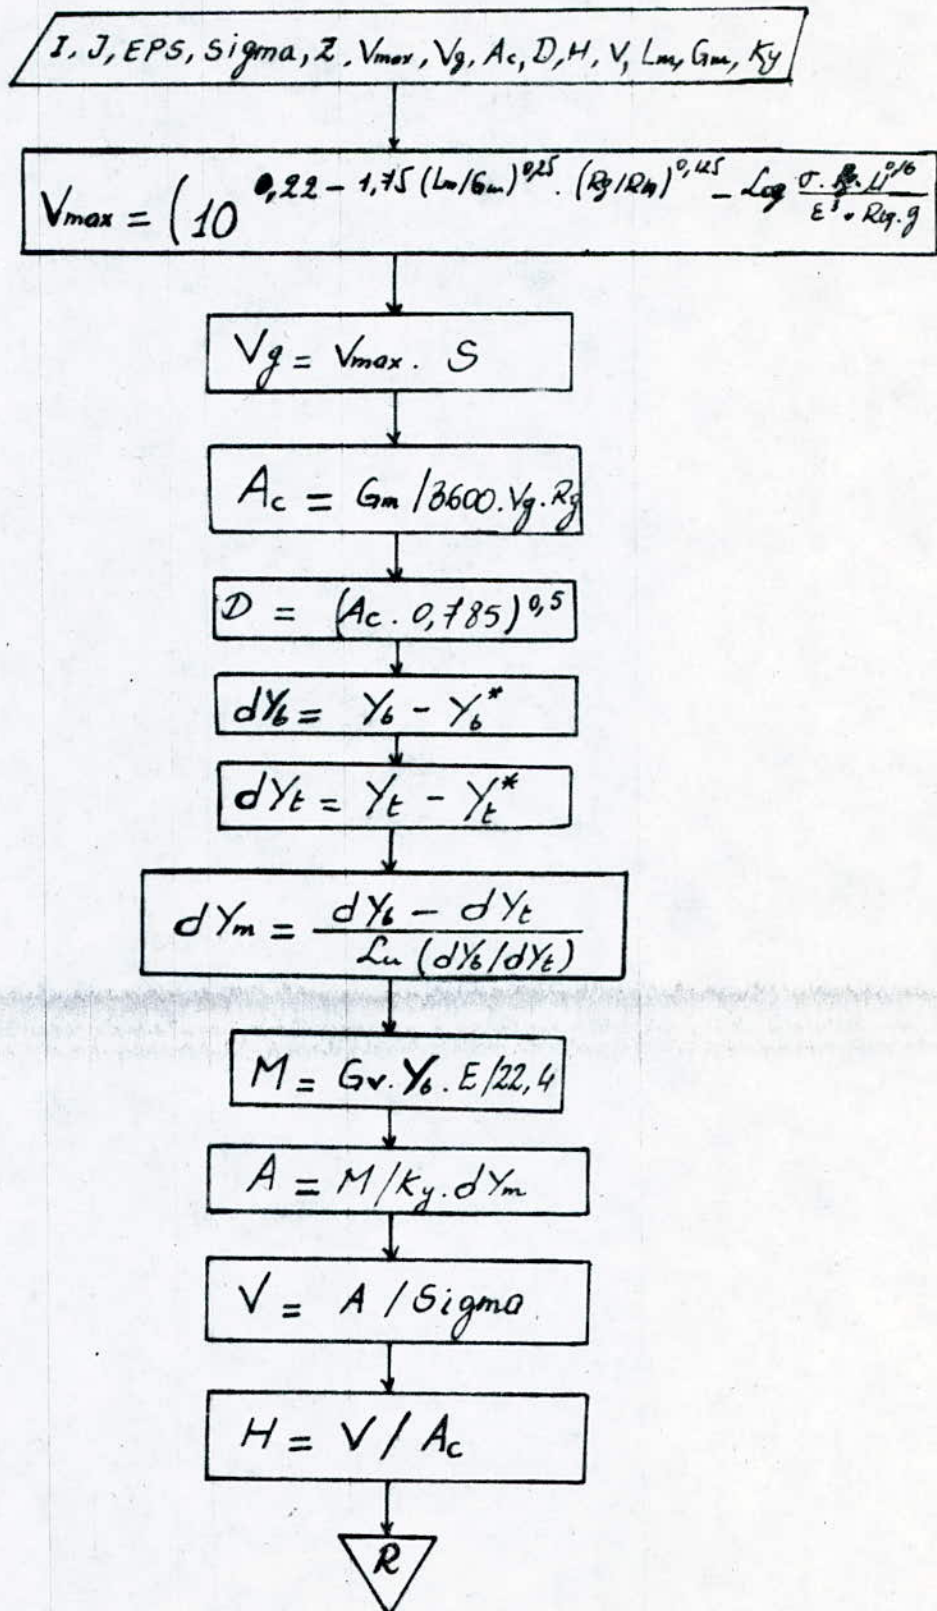 I, J, EPS, Sigma, Z, Vmax, Vg, Ac, D, H, V, Lm, Gm, Ky
Vmax = (10^0,22 - 1,75 (Lm/Gm)^0,25 . (Rg/Rlq)^0,125 - Log σ. Rg. μ^0,16 / ε³ . Rlq. g
Vg = Vmax . S
Ac = Gm / 3600. Vg. Rg
D = (Ac . 0,785)^0,5
dYb = Yb - Yb*
dYt = Yt - Yt*
dYm = dYb - dYt / Ln (dYb/dYt)
M = Gv. Yb. E/22,4
A = M/Ky. dYm
V = A / Sigma
H = V / Ac
R